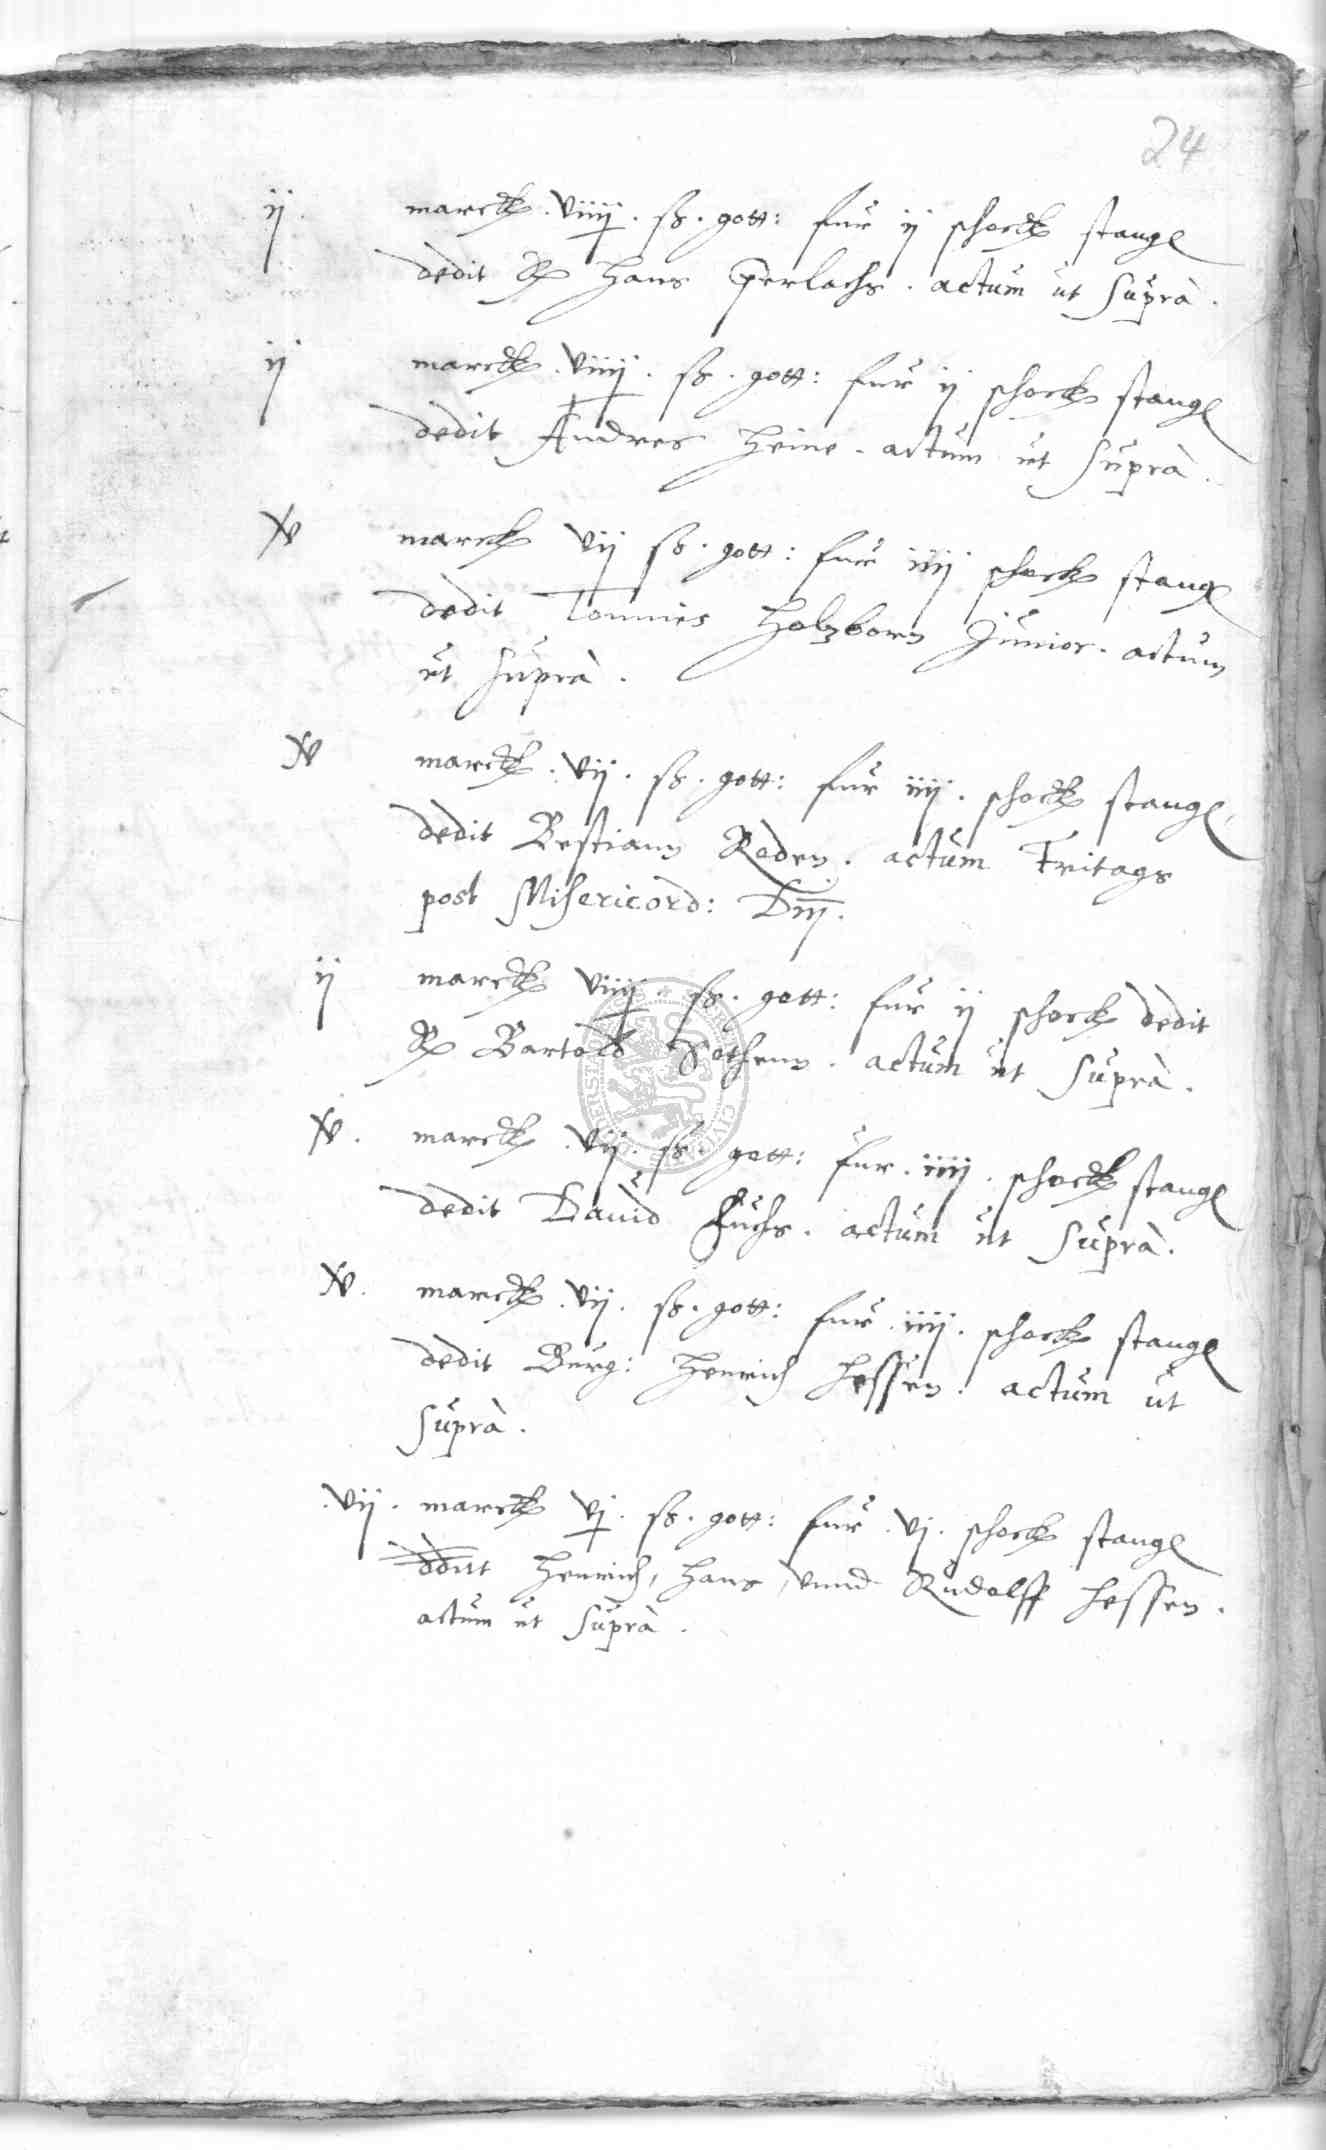 24
ij marck . viiij . ß . gott: fur ij schock stang
dedit H Hans Gerlachs . actum ut Supra .
ij marck . viiij . ß . gott: fur ij schock stang
dedit Andres Heine . actum ut Supra .
marck vij ß . gott: fur iiij schock stang
dedit Tonnies Holzborn Junior . actum
ut Supra .
marck . vij . ß . gott: fur iiij . schock stang
dedit Bestiann Roden . actum Fritags
post Misericord: Dnj .
ij marck viiij ß . gott: fur ij schock dedit
H Bartold Sothenn . actum ut Supra .
marck . vij . ß . gott: fur . iiij . schock stang
dedit Dauid Fuchs . actum ut Supra .
marck . vij . ß . gott: fur . iiij . schock stang
dedit Burg: Henrich Hessen . actum ut
Supra .
. vij . marck vj . ß . gott: fur . vj . schock stang
Henrich, Hans, vnnd Rudolff Hessen .
actum ut Supra .